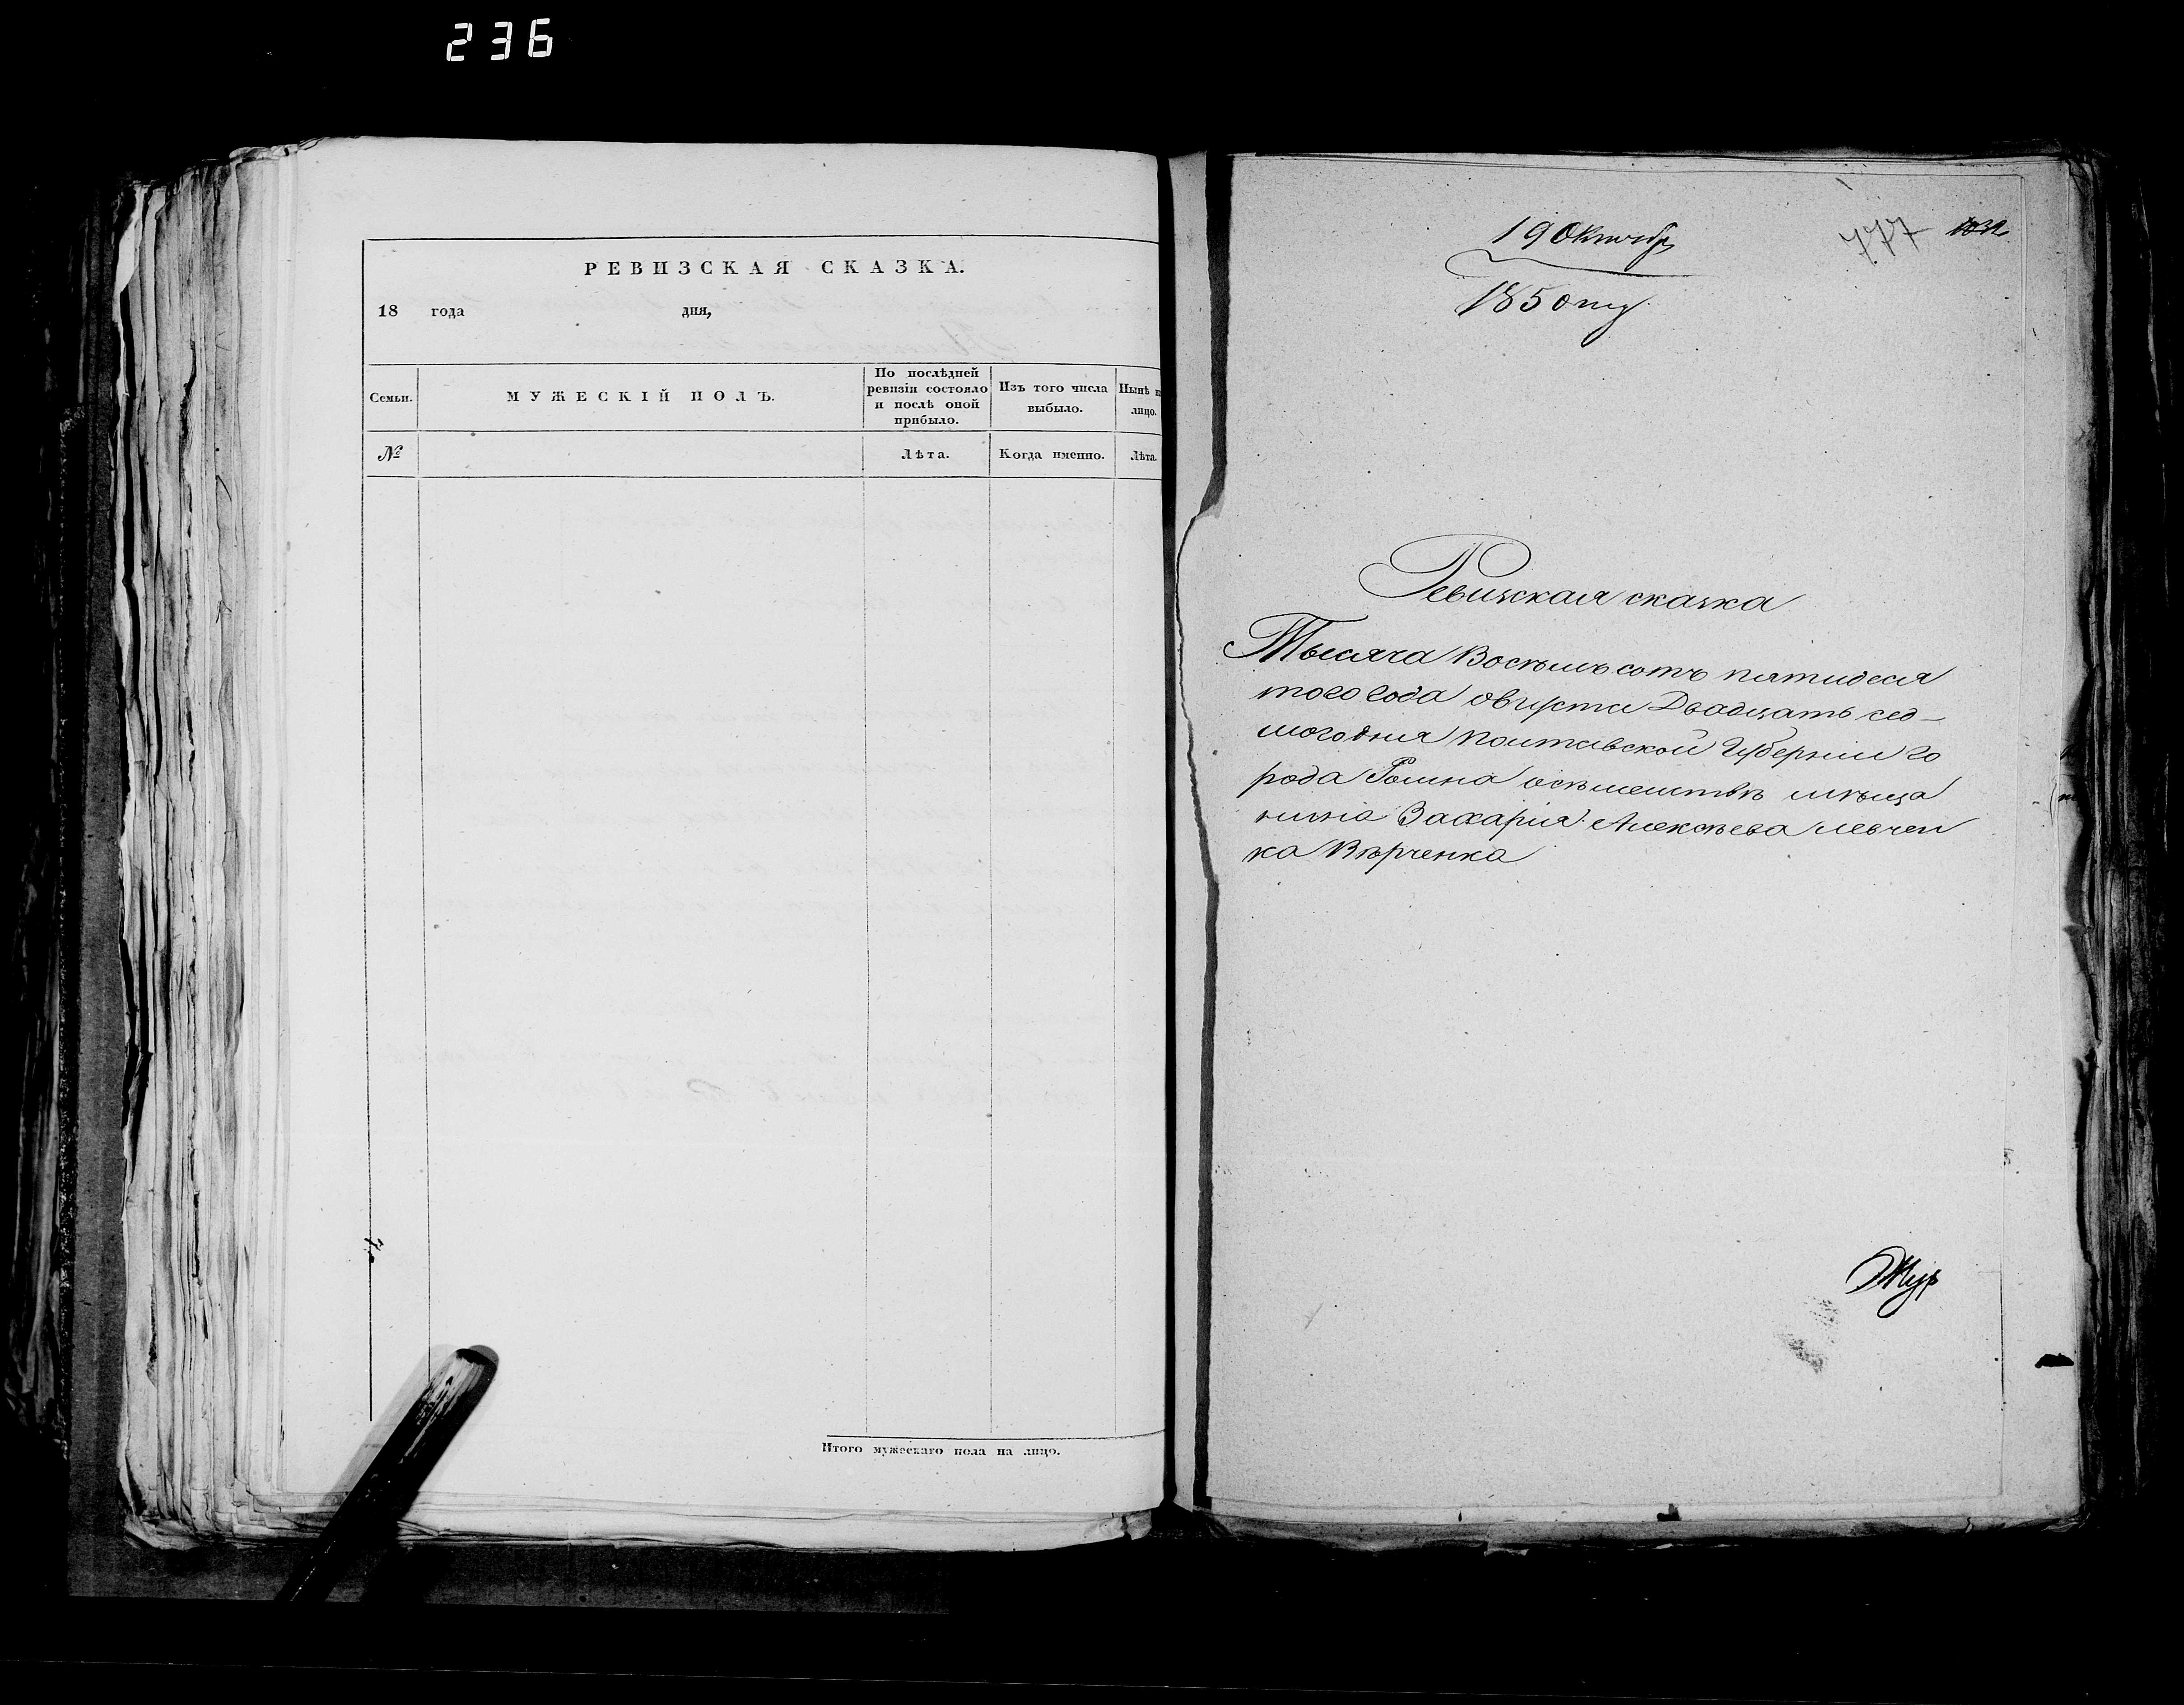 236
РЕВИЗСКАЯ СКАЗКА.
18 года дня,
Семьи.
МУЖЕСКІЙ ПОЛЪ.
По послѣдней
ревизіи состояло
и послѣ оной
прибыло.
Изъ того числа
выбыло.
Нынѣ на
лицо.
№
Лѣта.
Когда именно.
Лѣта.
Итого мужескаго пола на лицо.
777
19 Октябр
1850 году
Ревизская сказка
Тысяча восемь сотъ пятидеся
того года августа Двадцать сед-
мого дня Полтавской Губерніи го
рода Ромна осѣмействѣ мѣща
нина Захарія Алексѣева Левчен
ка Вѣрченка